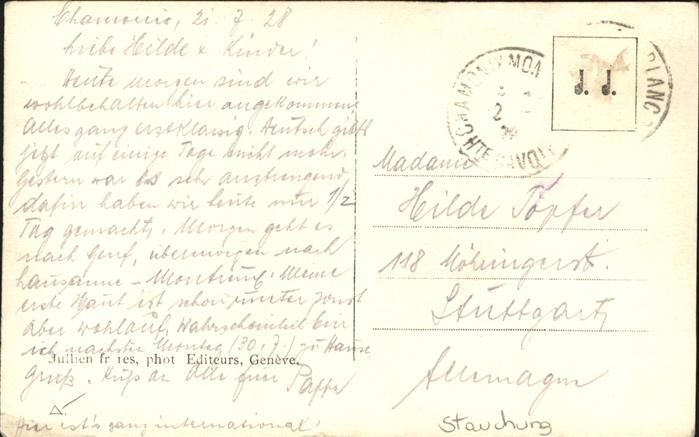 Chamonix, 21.7.28
Liebe Hilde & Kinder!
Heute morgen sind wir
wohlbehalten hier angekommen
Alles ging erstklassig. Deutsch gibt's
jetzt auf einige Tage nicht mehr.
Gestern war es sehr anstrengend
dafür haben wir heute nur 1/2
Tag gemacht. Morgen geht es
nach Genf, übermorgen nach
Lausanne - Montreux. Meine
erste Haut ist schon runter sonst
aber wohlauf. Wahrscheinlich bin
ich nächsten Montag (30.7.) zu Hause
Gruß & Kuß an Alle
Pappa
Hier ist's ganz international!
Jullien frères, phot Editeurs, Genève.
CHAMONIX MONT BLANC
HTE SAVOIE
J. J.
Madame
Hilde Töpfer
118 Möhringerst.
Stuttgart
Allemagne
Stauchung